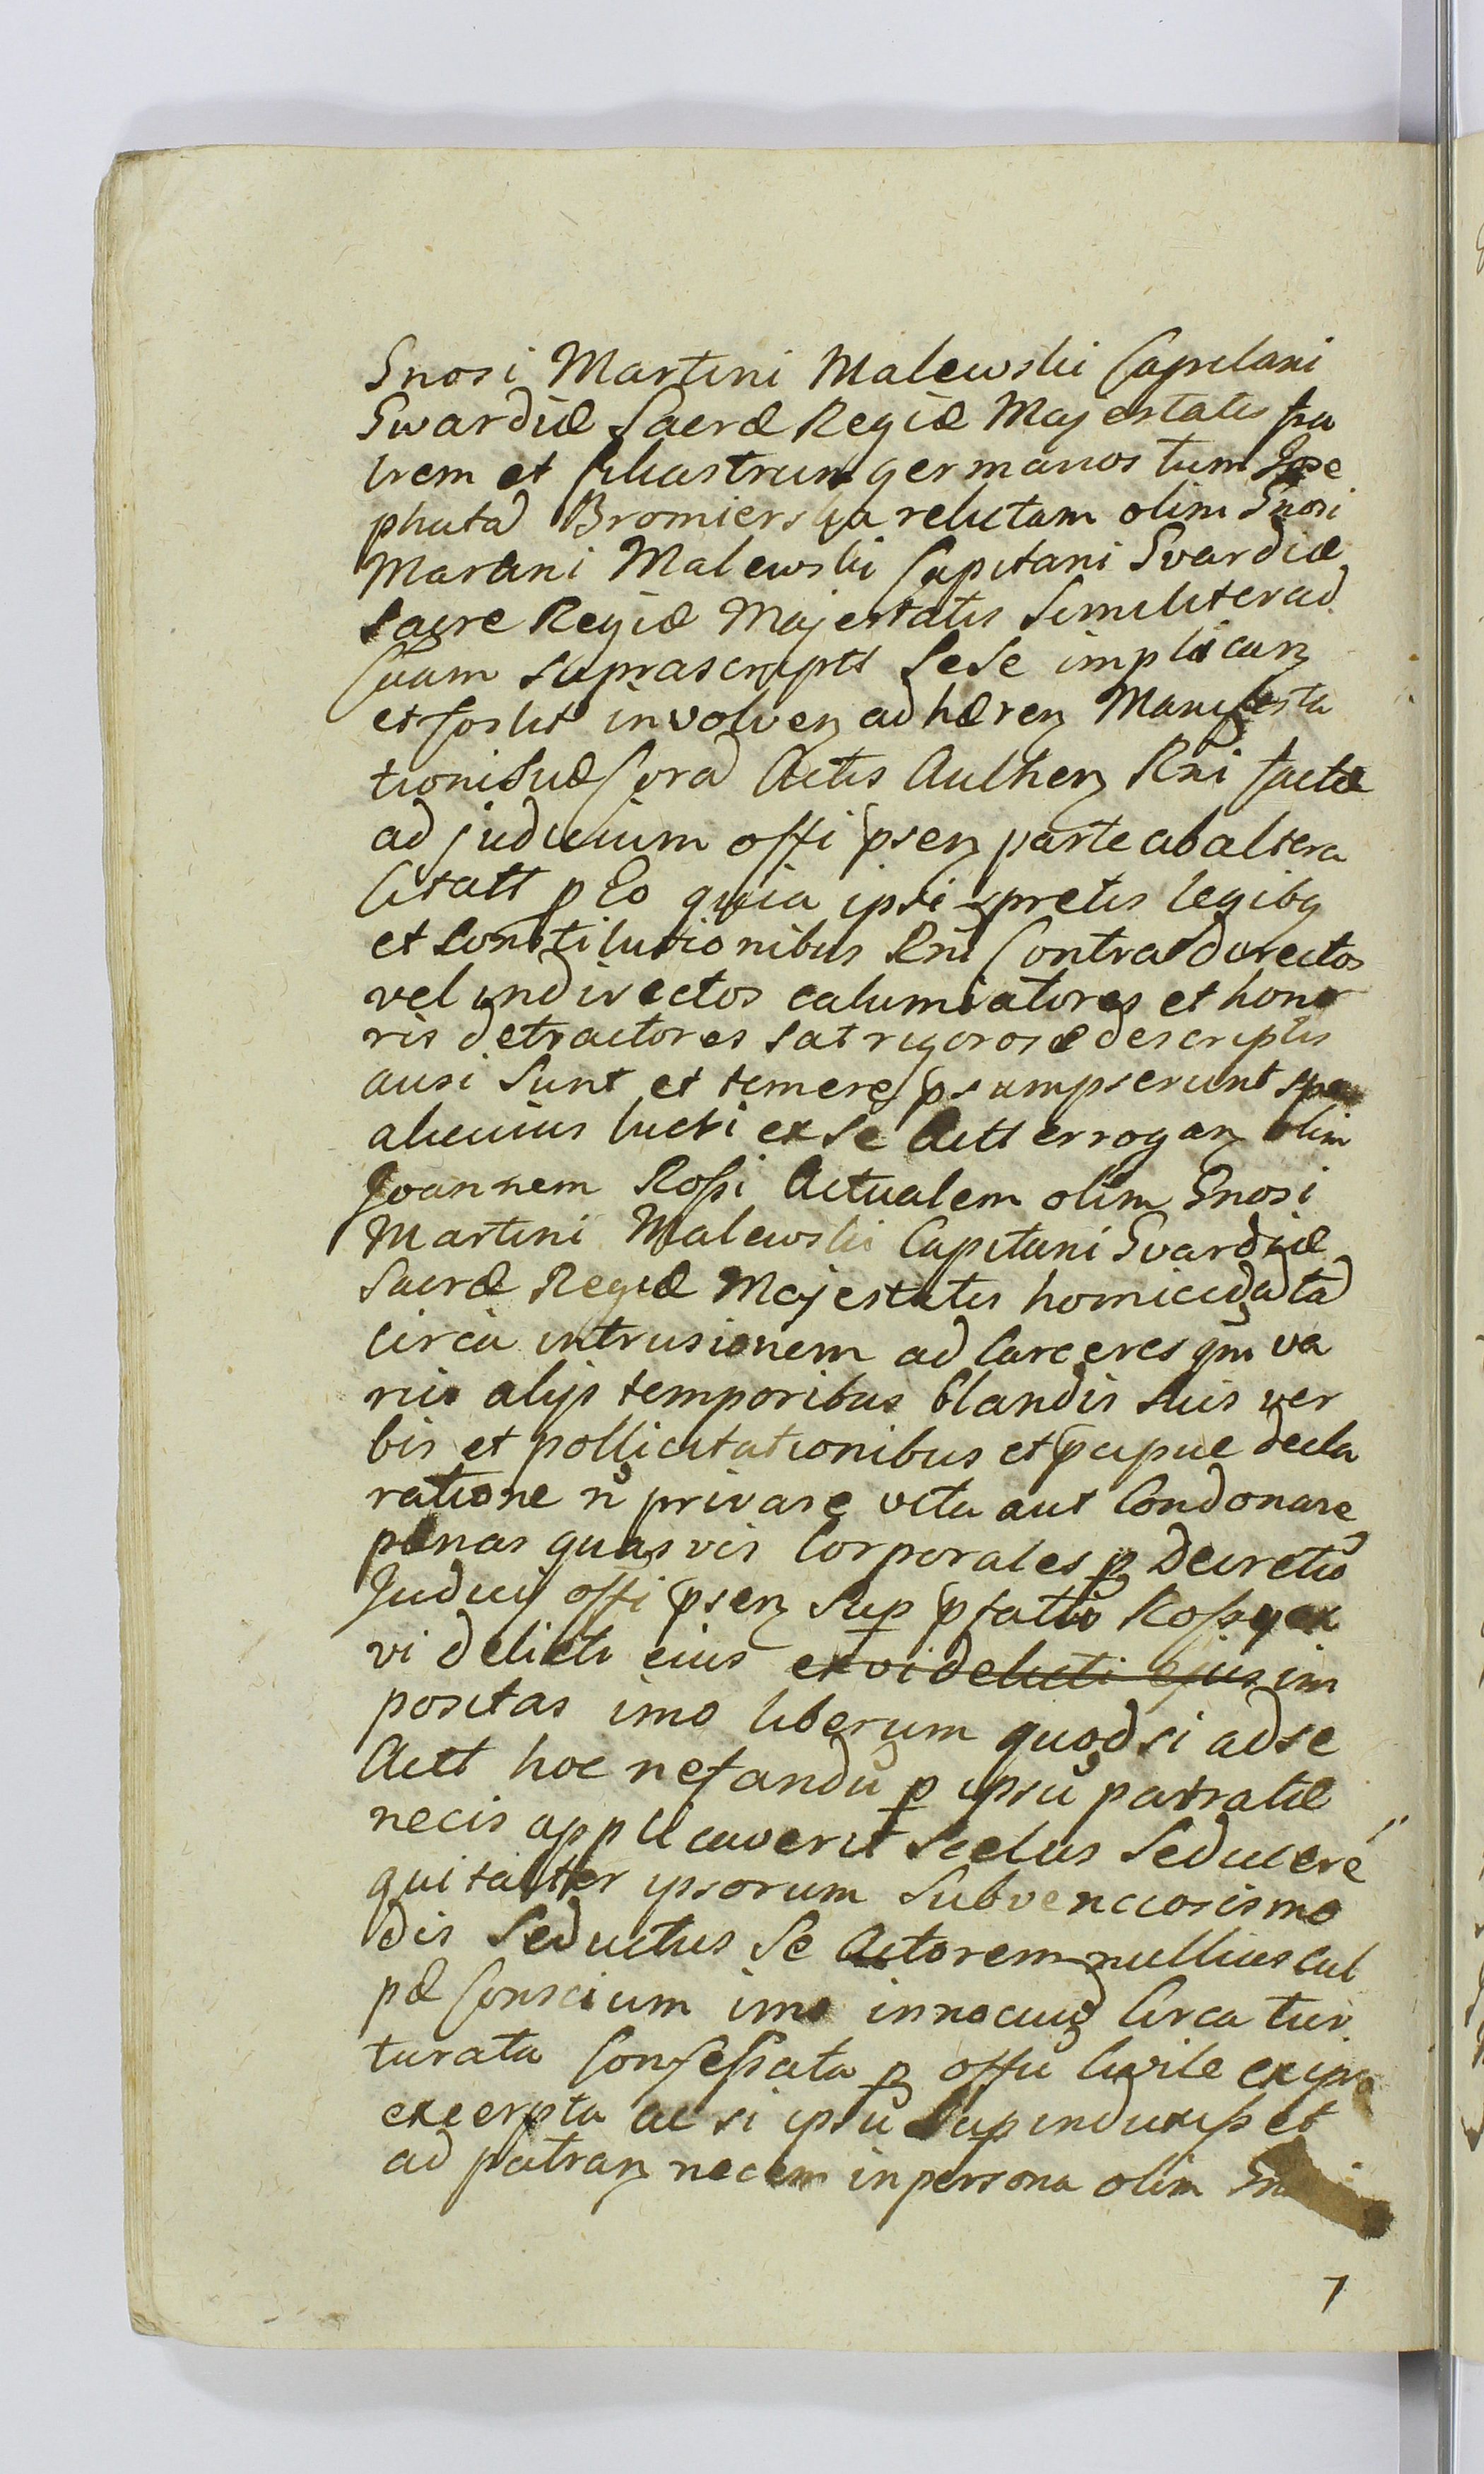 Gnosi Martini Malewski Capitani
Gwardiæ Sacræ Regiæ Majestatis fra
trem et filiastrum germanos tum Jose
phatã Bromierska relictam olim Gnosi
Martini Malewski Capitani Gvardiæ
Sacre Regiæ Majestatis Similiter ad
Cuam suprascriptt Sese implicanꝫ
et forlit involvenꝫ adhærenꝫ Manifesta
tioni Suæ Corã Actis Authenꝫ Rni factæ
ad judicium offi psenꝫ parte ab altera
Citatt p Eo quia ipsi spretis legibꝫ
et Constitutionibus Rni Contra directos
vel indirectos calumiatores et hono
ris detractores sat rigorose descriptis
ausi Sunt et temere psumpserunt spe
alicuius lucri ex Se Actt erroganꝫ olim
Joannem Rossi Actualem olim Gnosi
Martini Malewski Capitani Gvardiæ
Sacræ Regiæ Majestatis homicidã tã
circa intrusionem ad Carceres qm̃ va
riis alijs temporibus blandis suis ver
bis et pollicitationibus et pcipue decla
ratione ñ privare vita aut Condonare
pænas quasvis Corporales p Decretũ
Judicij offi psenꝫ Sup pfatũ Rossy ex
vi delicti eius ex vi delicti ejus im
positas imo liberum quod si ad se
Actt hoc nefandũ p ipsũ patratæ
necis applicaverit Scelus Seducere
qui taliter ipsorum Subvenciosis mo
dis Seductus Se Actorem nullius cul
pæ Conscium imo innocuũ Circa tur
turata Confessata p offũ Civile ex ipso
excerpta ac si ipsũ Sup induxisset
ad patranꝫ necem in persona olim
7